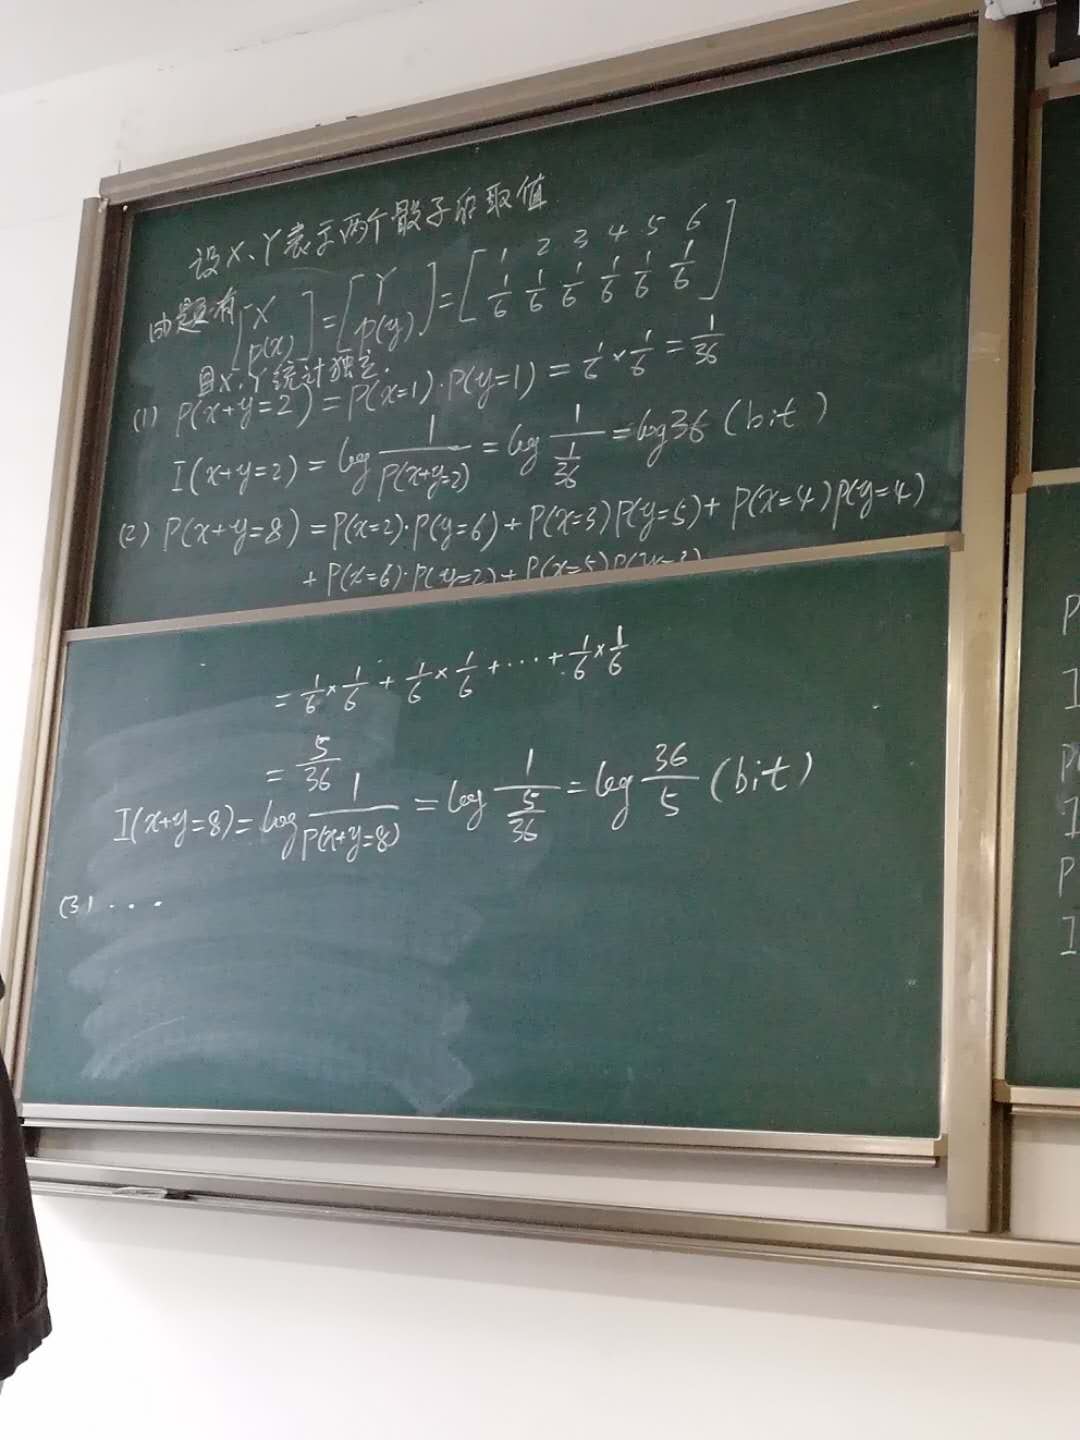 设X、Y表示两个骰子的取值
由题有 [X P(x)] = [Y P(y)] = [1 2 3 4 5 6 1/6 1/6 1/6 1/6 1/6 1/6]
且X、Y统计独立.
(1) P(x+y=2) = P(x=1)·P(y=1) = 1/6 × 1/6 = 1/36
I(x+y=2) = log 1/P(x+y=2) = log 1/(1/36) = log36 (bit)
(2) P(x+y=8) = P(x=2)·P(y=6) + P(x=3)P(y=5) + P(x=4)P(y=4)
+ P(x=6)·P(y=2) + P(x=5)P(y=3)
= 1/6 × 1/6 + 1/6 × 1/6 + ··· + 1/6 × 1/6
= 5/36
I(x+y=8) = log 1/P(x+y=8) = log 1/(5/36) = log 36/5 (bit)
(3) ···
P
I
P
I
P
I